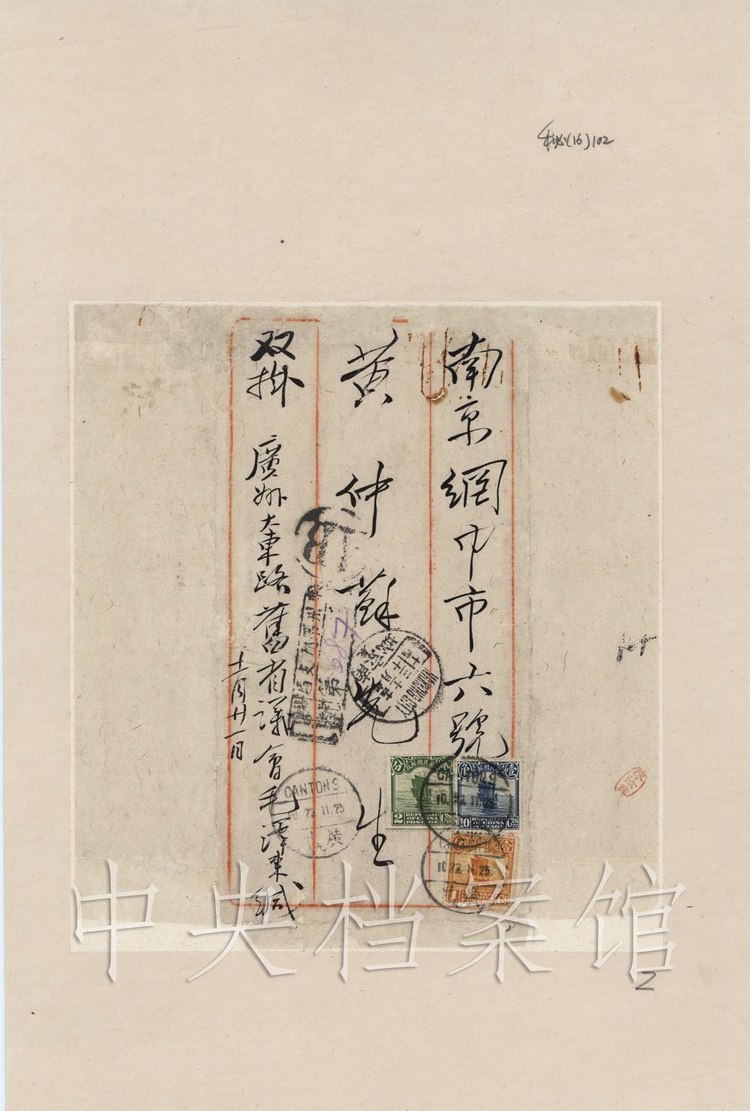 (16)102
南京網巾市六號
黄仲蘇先生
双掛
廣州大東路舊省議會毛澤東緘
十一月廿一日
CANTON 9
23.11.25
2 CTS
10 CTS
中央档案馆
2